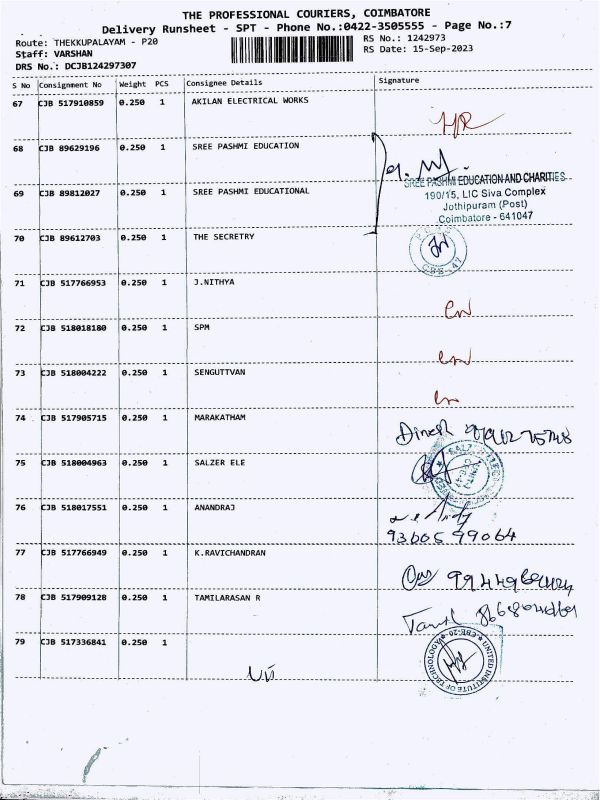 THE PROFESSIONAL COURIERS, COIMBATORE
Delivery Runsheet - SPT - Phone No.:0422-3505555 - Page No.:7
Route: THEKKUPALAYAM - P20
Staff: VARSHAN
DRS No.: DCJB124297307
RS No.: 1242973
RS Date: 15-Sep-2023
S No Consignment No Weight PCS Consignee Details Signature
67 CJB 517910859 0.250 1 AKILAN ELECTRICAL WORKS
68 CJB 89629196 0.250 1 SREE PASHMI EDUCATION
SREE PASHMI EDUCATION AND CHARITIES
190/15, LIC Siva Complex
Jothipuram (Post)
Coimbatore - 641047
69 CJB 89812027 0.250 1 SREE PASHMI EDUCATIONAL
70 CJB 89612703 0.250 1 THE SECRETRY
CBE-47
71 CJB 517766953 0.250 1 J.NITHYA
72 CJB 518018180 0.250 1 SPM
73 CJB 518004222 0.250 1 SENGUTTVAN
74 CJB 517905715 0.250 1 MARAKATHAM
Dinesh
75 CJB 518004963 0.250 1 SALZER ELE
76 CJB 518017551 0.250 1 ANANDRAJ
93605 99064
77 CJB 517766949 0.250 1 K.RAVICHANDRAN
78 CJB 517909128 0.250 1 TAMILARASAN R
Tamil
79 CJB 517336841 0.250 1
UNITED INSTITUTE OF TECHNOLOGY
CBE-20